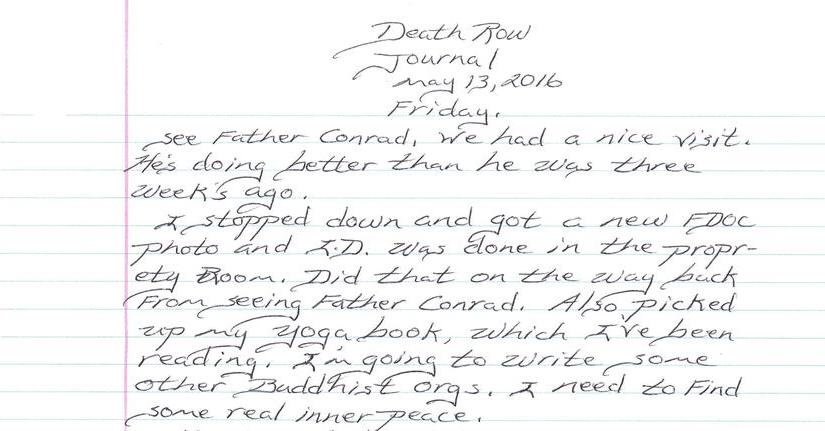 Death Row
Journal
May 13, 2016
Friday.
see Father Conrad, we had a nice visit.
He's doing better than he was three
week's ago.
I stopped down and got a new FDOC
photo and I.D. was done in the propr-
ety Room. Did that on the way back
From seeing Father Conrad. Also picked
up my yoga book, which I've been
reading. I'm going to write some
other Buddhist orgs. I need to Find
some real inner peace.